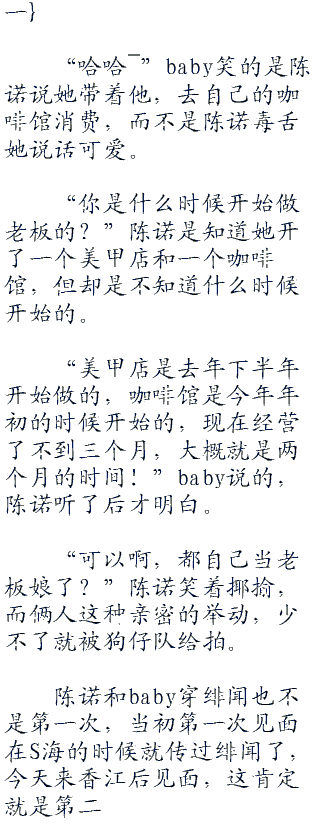 一}
“哈哈~”baby笑的是陈
诺说她带着他，去自己的咖
啡馆消费，而不是陈诺毒舌
她说话可爱。
“你是什么时候开始做
老板的？”陈诺是知道她开
了一个美甲店和一个咖啡
馆，但却是不知道什么时候
开始的。
“美甲店是去年下半年
开始做的，咖啡馆是今年年
初的时候开始的，现在经营
了不到三个月，大概就是两
个月的时间！”baby说的，
陈诺听了后才明白。
“可以啊，都自己当老
板娘了？”陈诺笑着揶揄，
而俩人这种亲密的举动，少
不了就被狗仔队给拍。
陈诺和baby穿绯闻也不
是第一次，当初第一次见面
在S海的时候就传过绯闻了，
今天来香江后见面，这肯定
就是第二